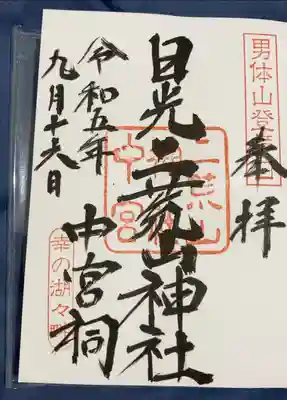 男体山登拝口
奉拝
日光二荒山神社
中宮祠
令和五年
九月十六日
幸の湖々畔